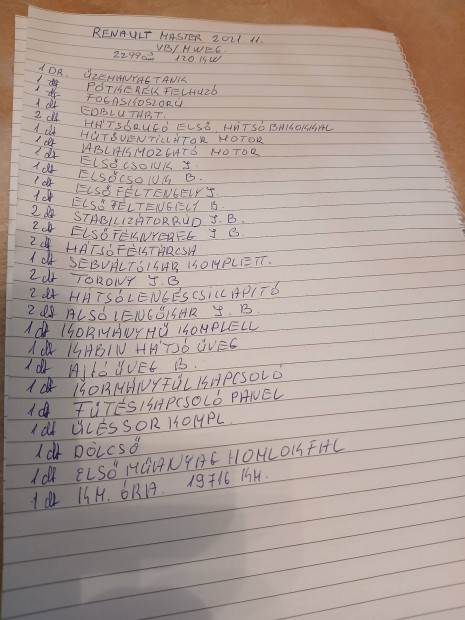 RENAULT MASTER 2021 11.
VB/MWEG.
2299cm³ 120 KW
1 DR. ÜZEMANYAGTANK
1 db PÓTKERÉK FELHUZÓ
1 db FOGASKOSZORU
1 db EDBLUTART.
2 db HÁTSÓRUGÓ ELSŐ HÁTSÓ BAKOKKAL
1 db HŰTŐVENTILLÁTOR MOTOR
1 db ABLAKMOZGATÓ MOTOR
1 db ELSŐCSONK J.
1 db ELSŐCSONK B.
1 db ELSŐ FÉLTENGELY J.
1 db ELSŐ FÉLTENGELY B.
2 db STABILIZÁTORRUD J.B.
2 db ELSŐFÉKNYEREG J B.
2 db HÁTSÓFÉKTÁRCSA
1 db SEBVÁLTÓKAR KOMPLETT.
2 db TORONY J.B
2 db HÁTSÓLENGÉSCSILLAPÍTÓ
2 db ALSÓ LENGŐKAR J. B.
1 db KORMÁNYMŰ KOMPLELL
1 db KABIN HÁTSÓ ÜVEG
1 db AJTÓ ÜVEG B.
1 db KORMÁNYFŰLKAPCSOLÓ
1 db FŰTÉSKAPCSOLÓ PANEL
1 db ÜLÉSSOR KOMPL.
1 db BÖLCSŐ
1 db ELSŐ MŰANYAG HOMLOKFAL
1 db KM. ÓRA. 19716 KM.